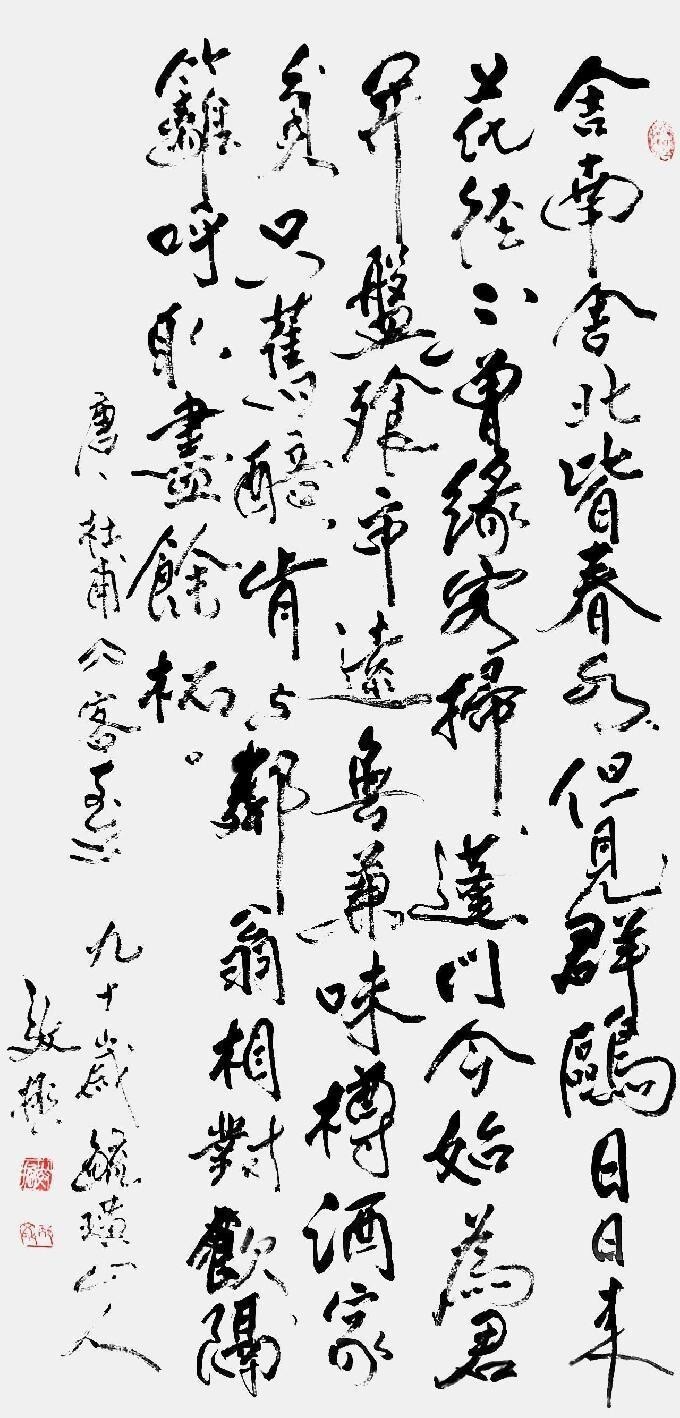 舍南舍北皆春水但見群鷗日日来
花径不曾緣客掃蓬門今始為君
開盤飱市遠無兼味樽酒家
貧只舊醅肯与鄰翁相對飲隔
籬呼取盡餘杯
唐杜甫公客至
九十歲 璜山人